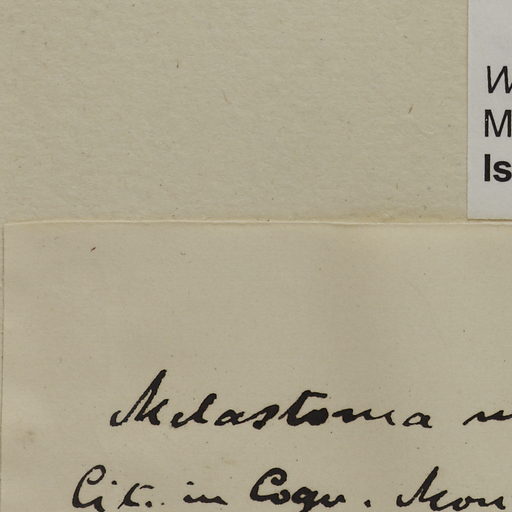 W
M
Is
Melastoma
Cit. in Cogn. Mon